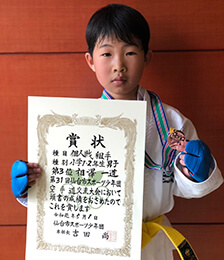 賞状
種目 個人戦 組手
種別 小学1・2年生 男子
第3位 相澤 一道
第31回仙台市スポーツ少年団
空手道交流大会において
頭書の成績をおさめたので
これを賞します
仙台市スポーツ少年団
本部長 吉田 尚